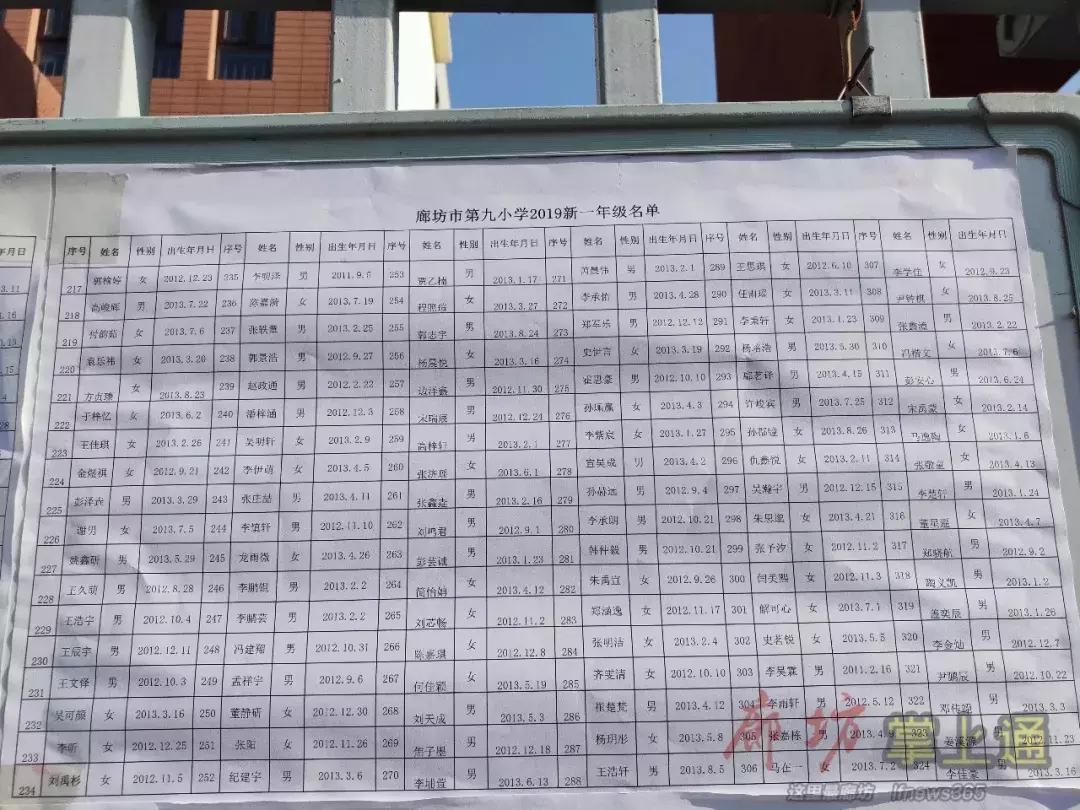 廊坊市第九小学2019新一年级名单
序号 姓名 性别 出生年月日 序号 姓名 性别 出生年月日 序号 姓名 性别 出生年月日 序号 姓名 性别 出生年月日 序号 姓名 性别 出生年月日 序号 姓名 性别 出生年月日
217 郭榆婷 女 2012.12.23 235 李明泽 男 2011.9.5 253 贾乙楠 男 2013.1.17 271 芮晨伟 男 2013.2.1 289 王思琪 女 2012.6.10 307 李学佳 女 2012.9.23
218 高峻熙 男 2013.7.22 236 陈嘉漪 女 2013.7.19 254 程熙瑞 女 2013.3.27 272 李承佑 男 2013.4.28 290 任雨瑶 女 2013.3.11 308 尹钟棋 女 2013.8.25
219 付韵茹 女 2013.7.6 237 张轶童 男 2013.2.25 255 郭志宇 男 2013.8.24 273 郑军乐 男 2012.12.12 291 李秉轩 女 2013.1.23 309 张鑫迪 男 2013.2.22
220 袁乐祎 女 2013.3.20 238 郭景浩 男 2012.9.27 256 杨晨悦 女 2013.3.16 274 史世言 女 2013.3.19 292 杨丞浩 男 2013.5.30 310 冯楷文 女 2013.7.6
221 方贞臻 女 2013.8.23 239 赵政通 男 2012.2.22 257 边泽鑫 男 2012.11.30 275 崔思豪 男 2012.10.10 293 鄢茗译 男 2013.4.15 311 彭安心 男 2013.6.24
222 于梓忆 女 2013.6.2 240 潘梓涵 男 2012.12.3 258 宋瑞宸 男 2012.12.24 276 孙珮瀛 女 2013.4.3 294 许峻宾 男 2013.7.25 312 宋禹蒙 女 2013.2.14
223 王佳琪 女 2013.2.26 241 吴明轩 女 2013.2.9 259 高梓轩 男 2013.2.1 277 李紫宸 女 2013.1.27 295 孙郡锽 女 2013.8.26 313 马逸陶 女 2013.1.6
224 金煜祺 女 2012.9.21 242 李伊萌 女 2013.4.5 260 张济瑶 女 2013.6.1 278 宣昊成 男 2013.4.2 296 仇燕悦 女 2013.2.11 314 张敬童 女 2013.4.13
225 彭泽垚 女 2013.3.29 243 张庄喆 男 2013.4.11 261 张鑫垚 男 2013.2.16 279 孙赫远 男 2012.9.4 297 吴瀚宇 男 2012.12.15 315 李楚轩 男 2013.1.24
226 谢男 女 2013.7.5 244 李镇轩 男 2012.11.10 262 刘鸣君 男 2012.9.1 280 李承朗 男 2012.10.21 298 朱思璁 女 2013.4.21 316 董星延 女 2013.4.7
227 姚鑫研 男 2013.5.29 245 龙雨薇 女 2013.4.26 263 彭芸诚 男 2013.1.23 281 韩仲毅 男 2012.10.21 299 张予汐 女 2012.11.2 317 郑晓航 女 2012.9.2
228 王久萌 男 2012.8.28 246 李鹏锟 男 2013.2.2 264 简怡娟 女 2013.4.12 282 朱禹宣 女 2012.9.26 300 闫美熙 女 2012.11.3 318 魏义凯 男 2013.1.2
229 王浩宇 男 2012.10.4 247 李鹏芸 男 2013.2.2 265 刘芯畅 女 2012.11.2 283 郑涵逸 女 2012.11.17 301 解可心 女 2013.7.1 319 盖奕辰 男 2013.1.26
230 王辰宇 男 2012.12.11 248 冯建翔 男 2012.10.31 266 陈嘉琪 女 2012.12.8 284 张明洁 女 2013.2.4 302 史茗锐 女 2013.5.5 320 李金灿 男 2012.12.7
231 王文铎 男 2012.10.3 249 孟祥宇 男 2012.9.6 267 何佳颖 女 2013.5.19 285 齐雯清 女 2012.10.10 303 李昊霖 男 2011.2.16 321 尹鹏辰 男 2012.10.22
232 吴可颜 女 2013.3.16 250 董静研 女 2012.12.30 268 刘天成 男 2013.5.3 286 张楚梵 男 2013.4.12 304 李雨轩 男 2012.5.12 322 邓伟 女 2013.3.3
233 李昕 女 2012.12.25 251 张阳 女 2012.11.26 269 焦子墨 男 2012.12.18 287 杨玥彤 女 2013.5.8 305 张嘉栋 男 2013.4.9 323 姜溪源 2012.11.23
234 刘禹杉 女 2012.11.5 252 纪建宇 男 2013.3.6 270 李埔萱 女 2013.6.13 288 王浩轩 男 2013.8.5 306 马在一 女 2013.7.2 324 李佳豪 男 2013.3.16
廊坊掌上通
这里最廊坊 lfnews365